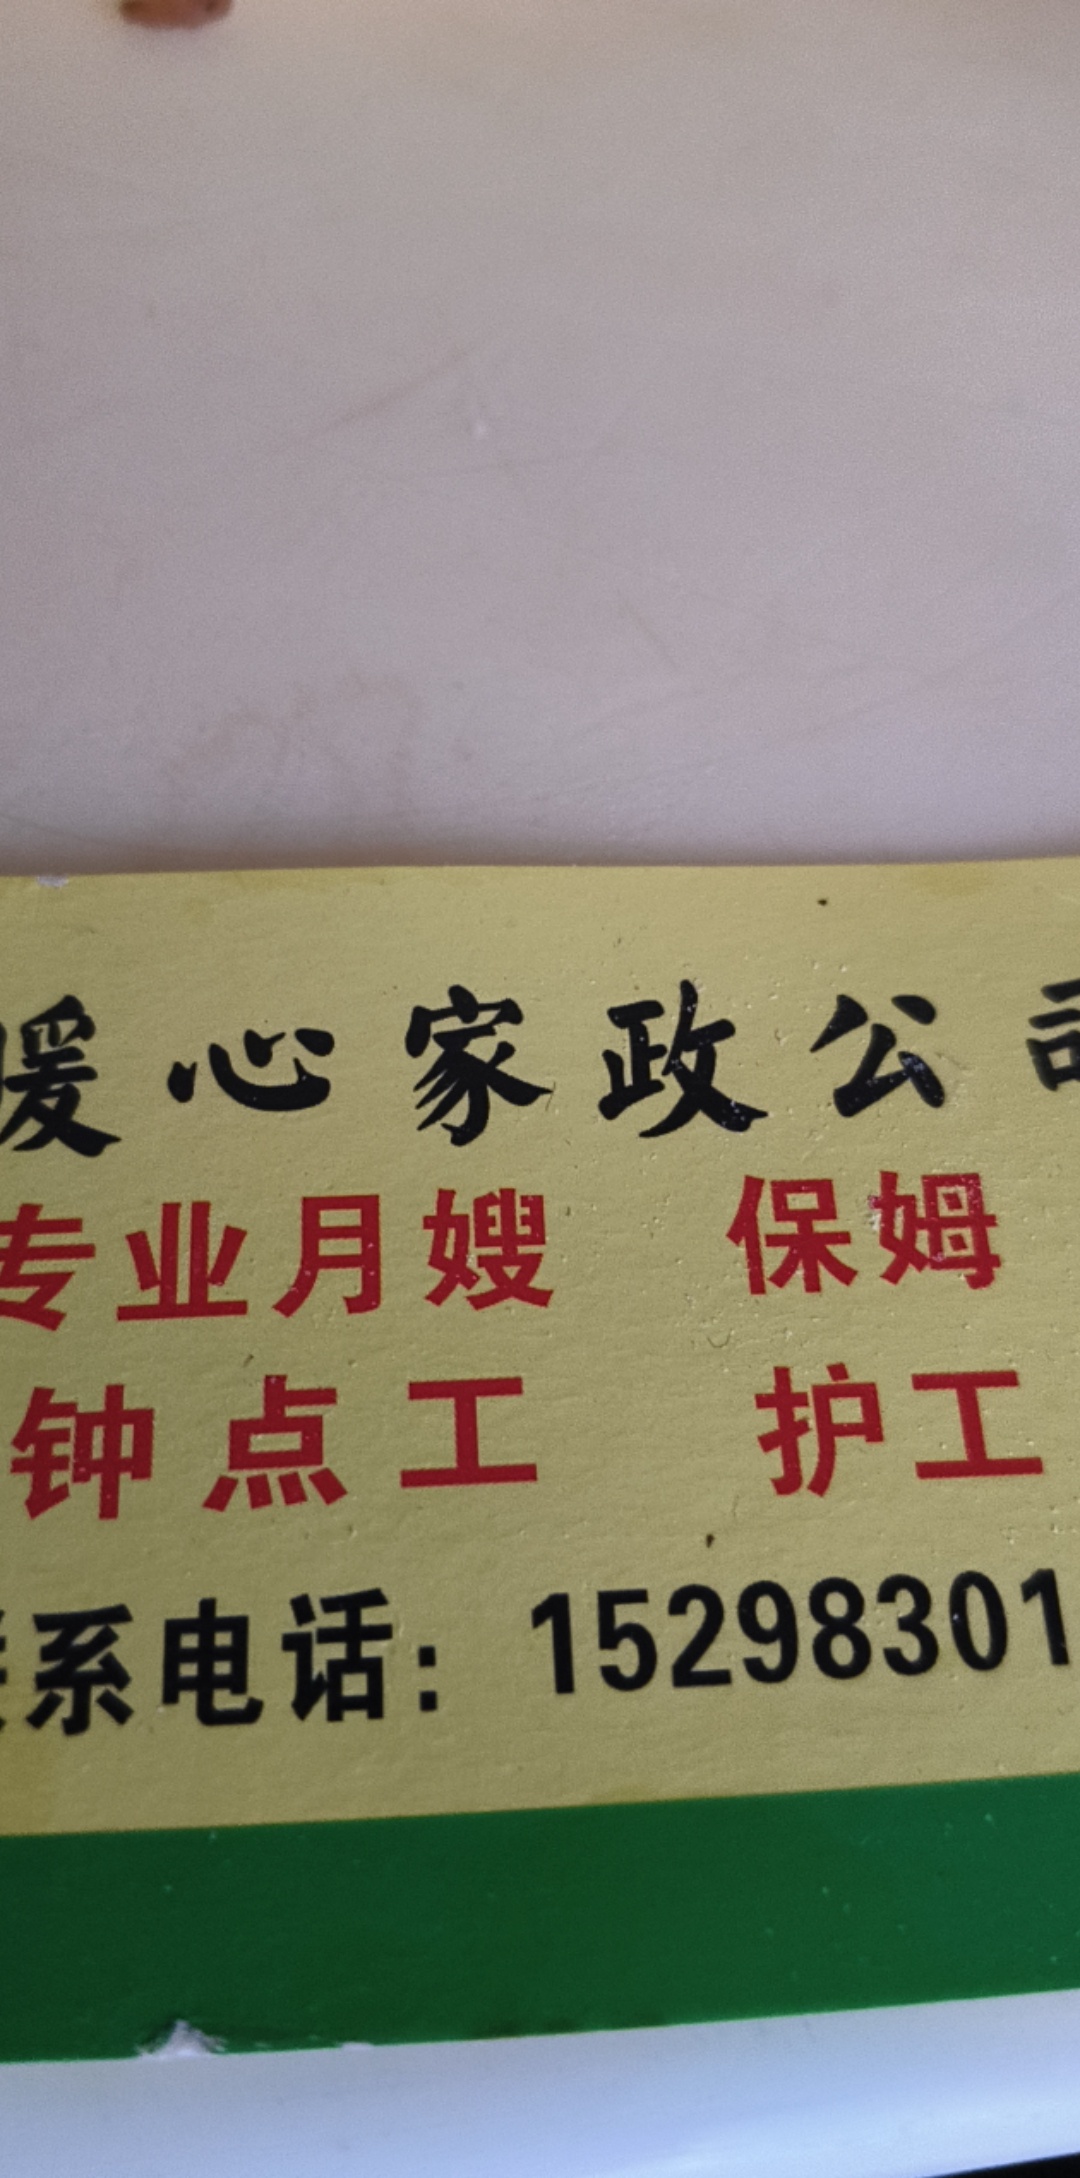 暖心家政公司
专业月嫂 保姆
钟点工 护工
系电话：15298301